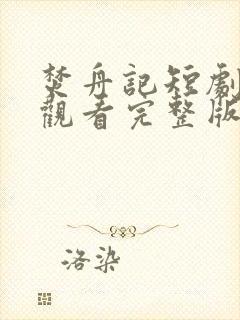 焚舟記短劇
觀看完整版
洛染